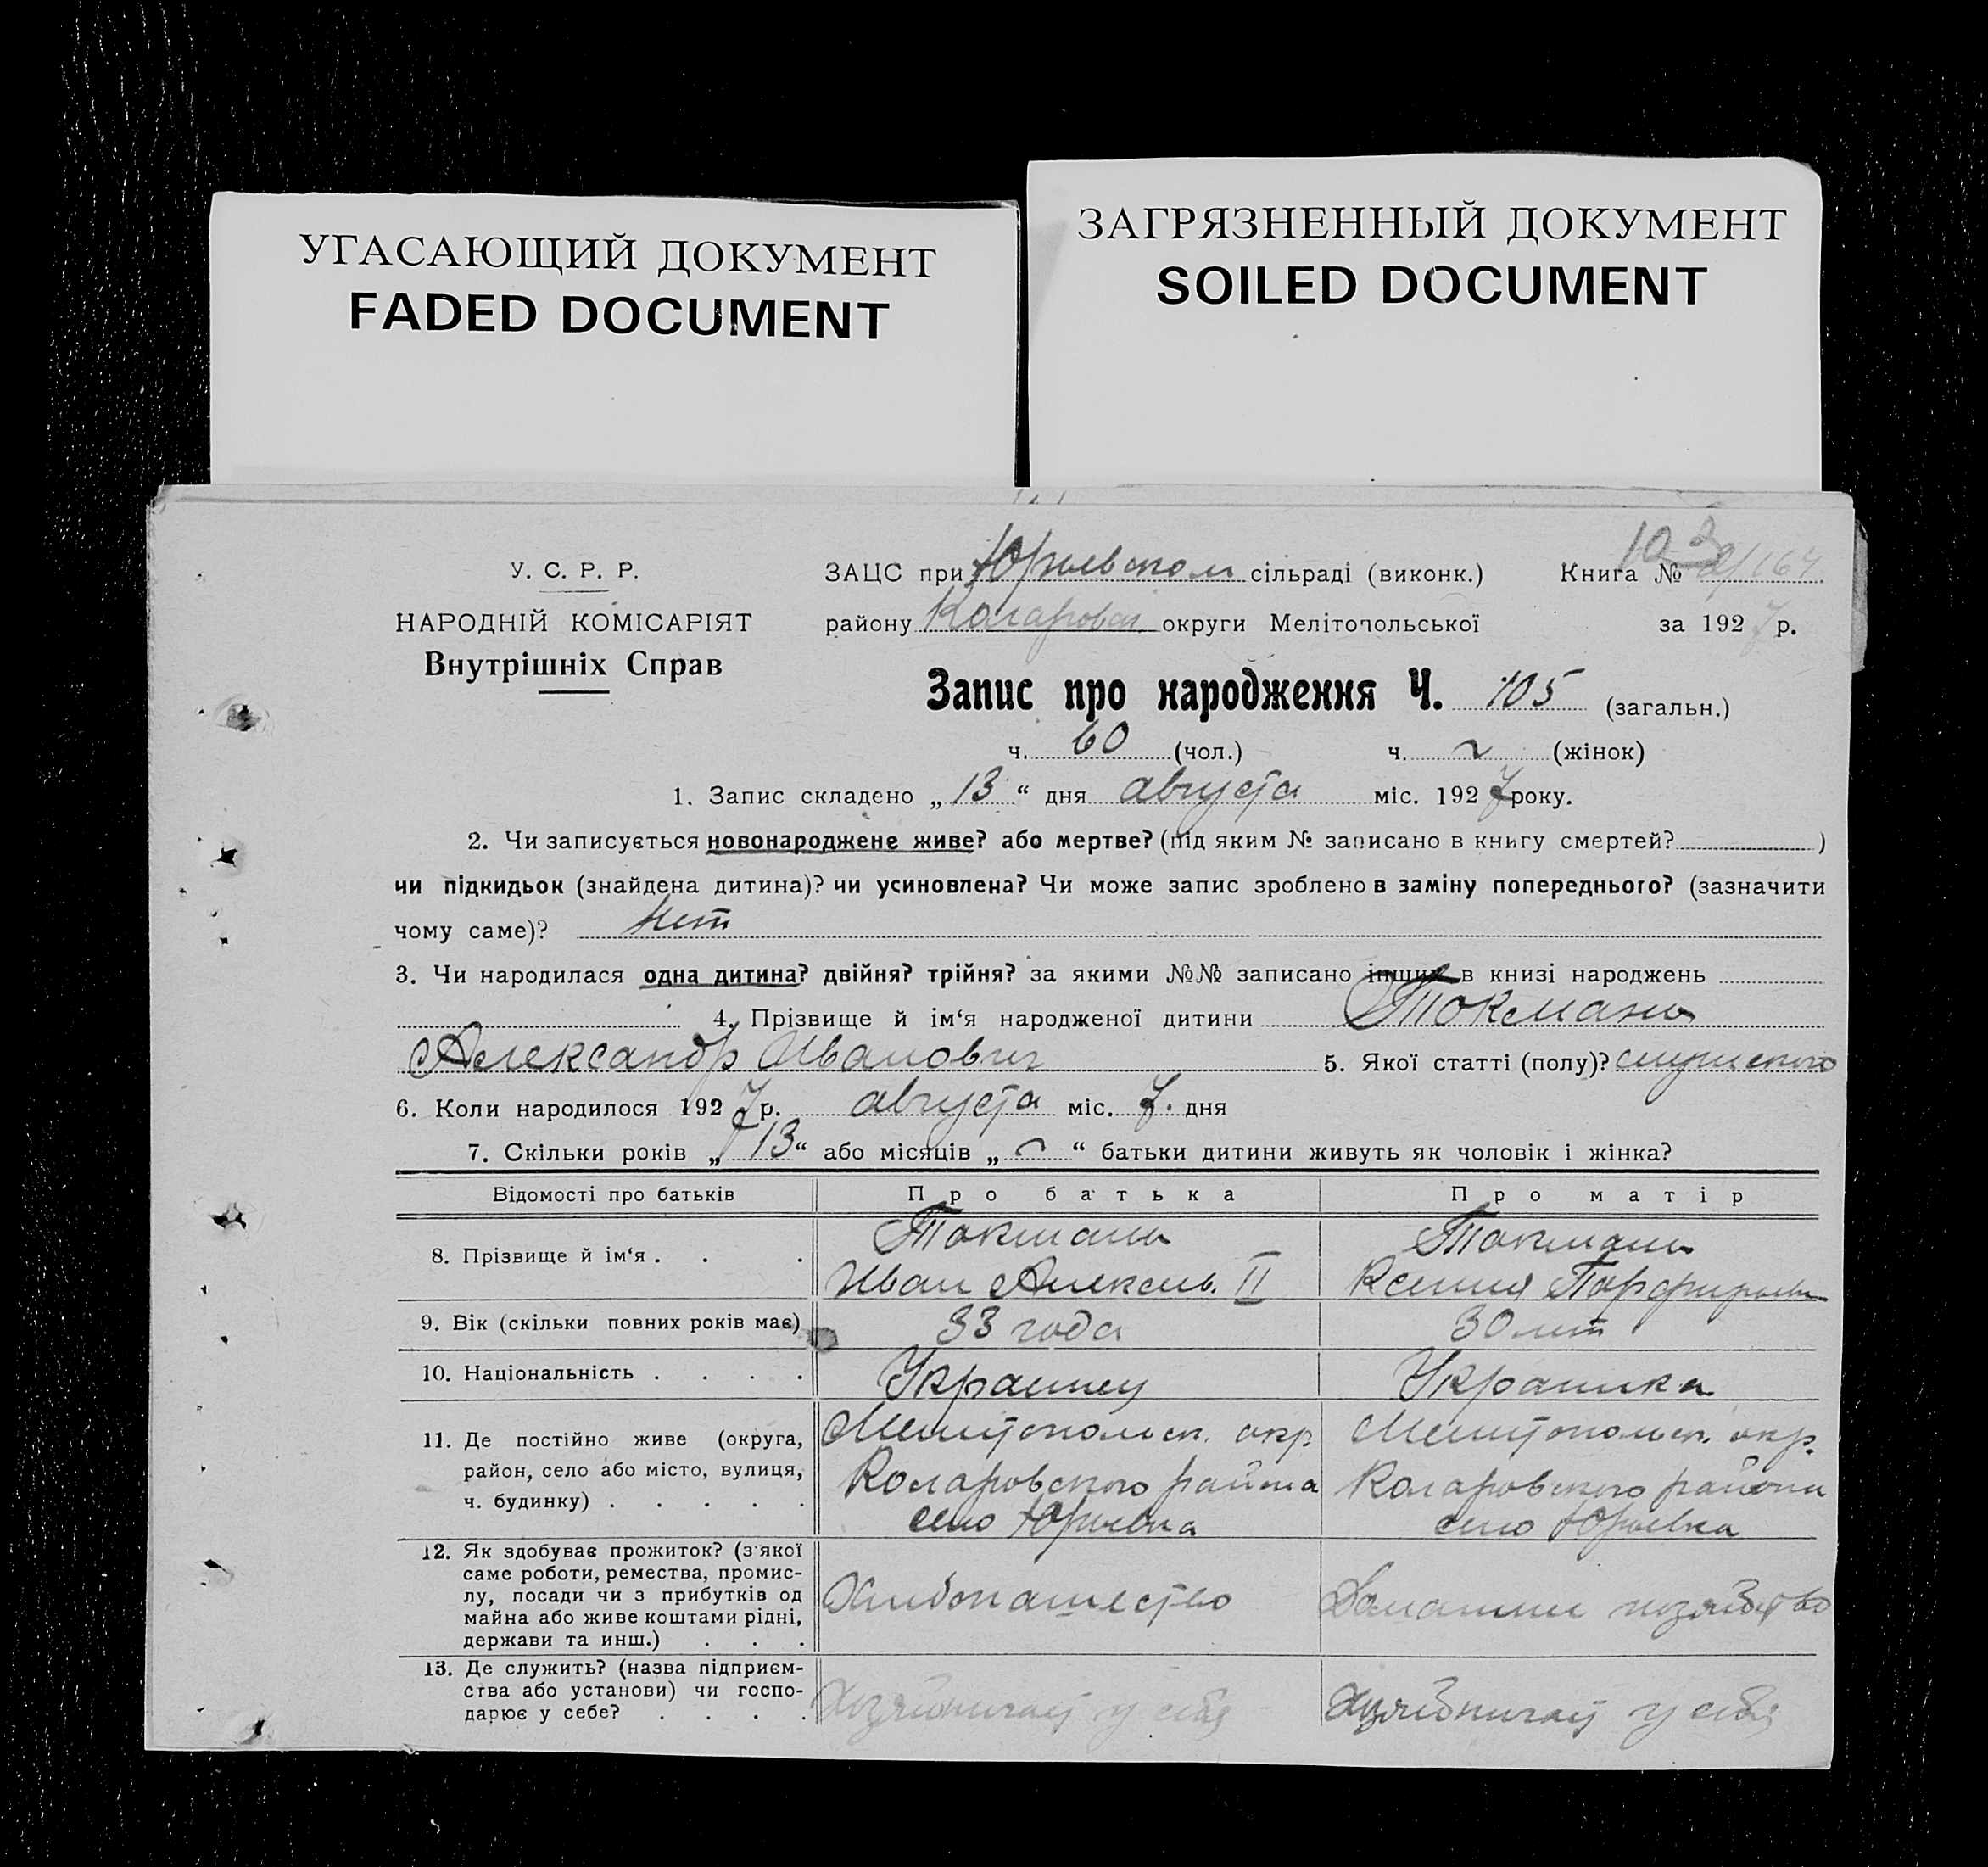 УГАСАЮЩИЙ ДОКУМЕНТ
FADED DOCUMENT
ЗАГРЯЗНЕННЫЙ ДОКУМЕНТ
SOILED DOCUMENT
У. С. Р. Р.
НАРОДНІЙ КОМІСАРІЯТ
Внутрішніх Справ
ЗАЦС при Юрьевском сільраді (виконк.) Книга №
району Коларовск. округи Мелітопольської за 1927 р.
Запис про народження Ч. 105 (загальн.)
ч. 60 (чол.) ч. ~ (жінок)
1. Запис складено „13“ дня августа міс. 1927 року.
2. Чи записується новонароджене живе? або мертве? (під яким № записано в книгу смертей? )
чи підкидьок (знайдена дитина)? чи усиновлена? Чи може запис зроблено в заміну попереднього? (зазначити
чому саме)? Нет
3. Чи народилася одна дитина? двійня? трійня? за якими №№ записано інших в книзі народжень
4. Прізвище й ім‘я народженої дитини Токмань
Александр Иванович 5. Якої статті (полу)? мужского
6. Коли народилося 1927 р. августа міс. 7. дня
7. Скільки років „13“ або місяців „~“ батьки дитини живуть як чоловік і жінка?
Відомості про батьків Про батька Про матір
8. Прізвище й ім‘я . . . Токмань Токмань
Иван Алексеев. II Ксения Порфирьевн
9. Вік (скільки повних років має) 33 года 30 лет
10. Національність . . . . Украинец Украинка
11. Де постійно живе (округа, Мелитопольск. окр. Мелитопольск. окр.
район, село або місто, вулиця, Коларовского района Коларовского района
ч. будинку) . . . . . село Юрьевка село Юрьевка
12. Як здобуває прожиток? (з‘якої
саме роботи, ремества, промис-
лу, посади чи з прибутків од Хлебопашество Домашнее хозяйство
майна або живе коштами рідні,
держави та инш.) . . .
13. Де служить? (назва підприєм-
ства або установи) чи госпо- Хозяйничает у себя Хозяйничает у себя
дарює у себе? . . . .